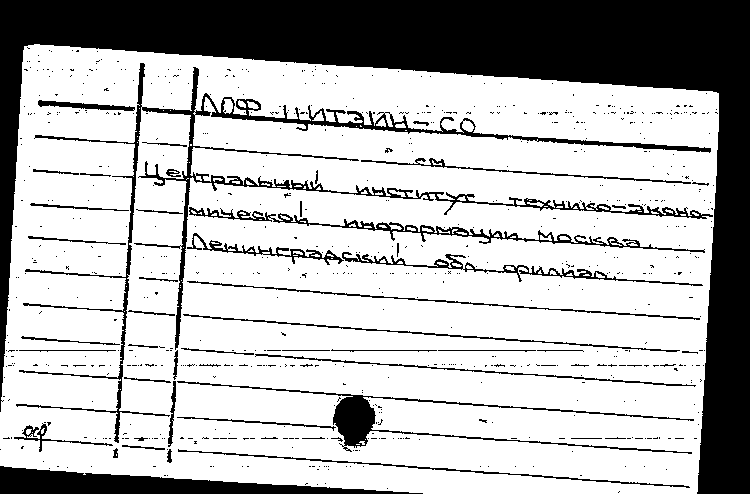 ЛОФ ЦИТЭИН-СО
см
Центральный институт технико-эконо-
мической информации. Москва.
Ленинградский обл. филиал.